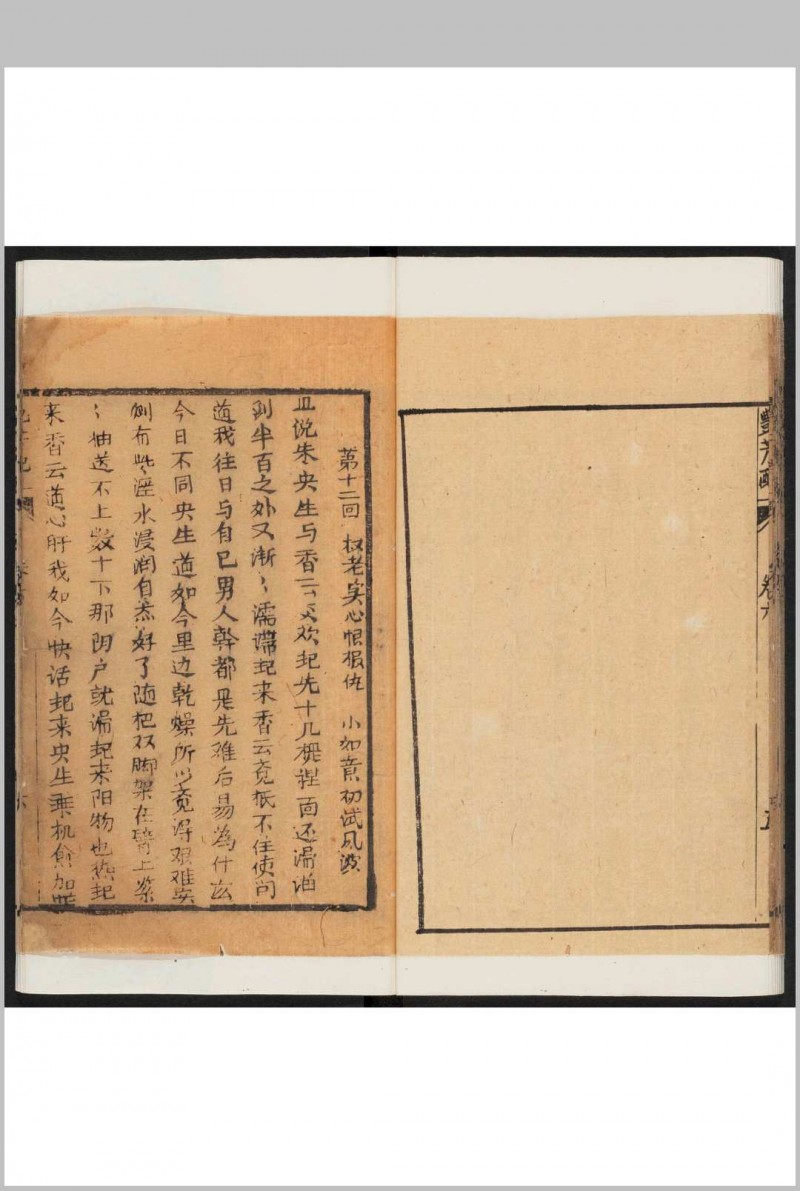 艷芳配 卷六 五
第十二回 权老实心恨报仇 小如意初试风波
且说朱央生与香云交欢起先十几 面还
到半百之外又渐〻 滞起来香云竟抵不住便问
道我往日与自已男人幹都是先难后易為什么
今日不同央生道如今里边乾燥所以竟得艰难
有些滛水浸润自然好了随把双脚架在臂上
〻抽送不上数十下那阴户就 起来阳物也热起
来香云道心肝我如今快活起来央生乘机愈加